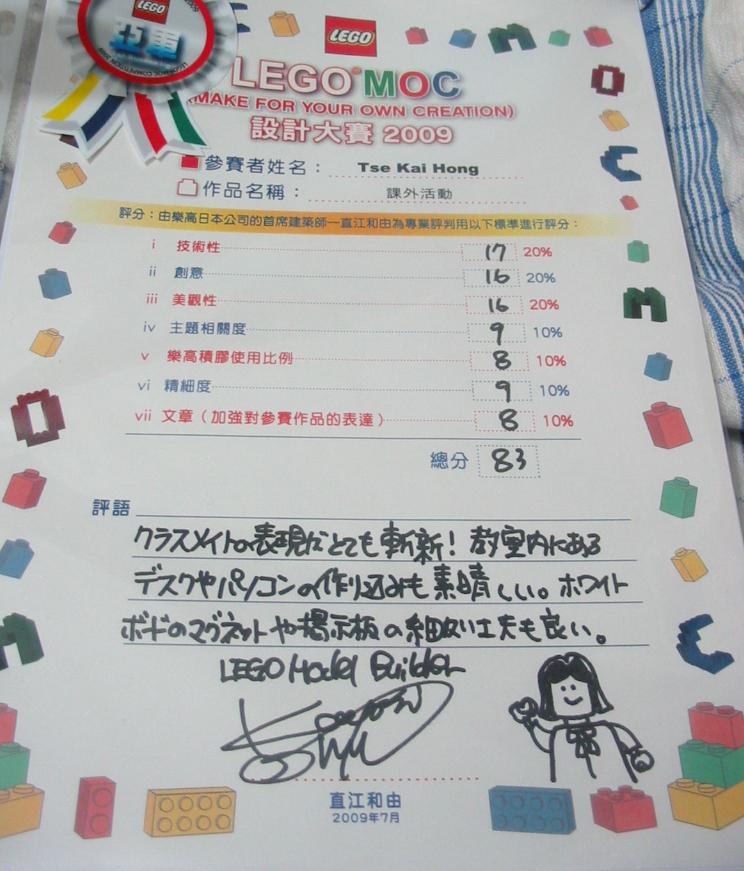 LEGO
亞軍
LEGO MOC COMPETITION 2009
LEGO
LEGO MOC
(MAKE FOR YOUR OWN CREATION)
設計大賽 2009
參賽者姓名： Tse Kai Hong
作品名稱： 課外活動
評分：由樂高日本公司的首席建築師—直江和由為專業評判用以下標準進行評分：
i 技術性 17 20%
ii 創意 16 20%
iii 美觀性 16 20%
iv 主題相關度 9 10%
v 樂高積膠使用比例 8 10%
vi 精細度 9 10%
vii 文章（加強對參賽作品的表達） 8 10%
總分 83
評語
クラスメイトの表現がとても斬新！教室内にある
デスクやパソコンの作り込みも素晴しい。ホワイト
ボードのマグネットや掲示板の細かい工夫も良い。
LEGO Model Builder
直江和由
2009年7月